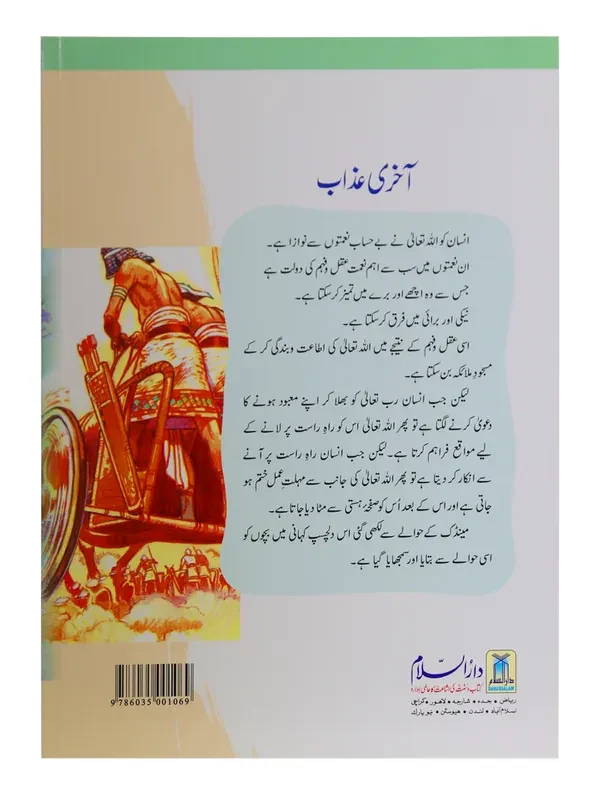 آخری عذاب
انسان کو اللہ تعالیٰ نے بے حساب نعمتوں سے نوازا ہے۔
ان نعمتوں میں سب سے اہم نعمت عقل و فہم کی دولت ہے
جس سے وہ اچھے اور برے میں تمیز کر سکتا ہے۔
نیکی اور برائی میں فرق کر سکتا ہے۔
اسی عقل و فہم کے نتیجے میں اللہ تعالیٰ کی اطاعت و بندگی کر کے
مسجودِ ملائکہ بن سکتا ہے۔
لیکن جب انسان رب تعالیٰ کو بھلا کر اپنے معبود ہونے کا
دعویٰ کرنے لگتا ہے تو پھر اللہ تعالیٰ اس کو راہِ راست پر لانے کے
لیے مواقع فراہم کرتا ہے۔ لیکن جب انسان راہِ راست پر آنے
سے انکار کر دیتا ہے تو پھر اللہ تعالیٰ کی جانب سے مہلتِ عمل ختم ہو
جاتی ہے اور اس کے بعد اُس کو صفحۂ ہستی سے مٹا دیا جاتا ہے۔
مینڈک کے حوالے سے لکھی گئی اس دلچسپ کہانی میں بچوں کو
اسی حوالے سے بتایا اور سمجھایا گیا ہے۔
دارالسلام
کتاب و سنت کی اشاعت کا عالمی ادارہ
ریاض • جدہ • شارجہ • لاہور • کراچی
اسلام آباد • لندن • ہیوسٹن • نیو یارک
دارالسلام
DARUSSALAM
9 786035 001069